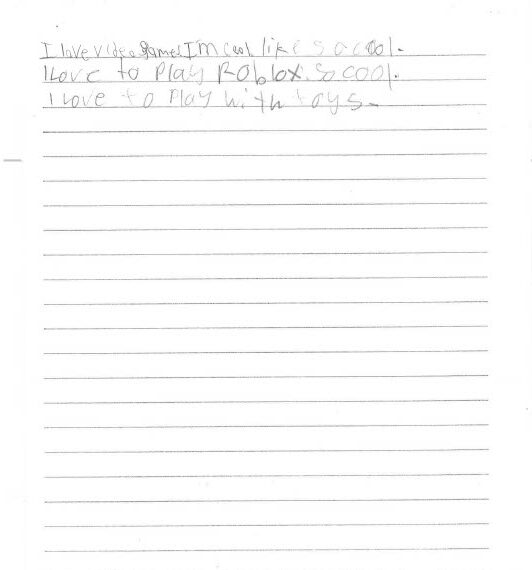 I love video games I'm cool like so cool.
I Love to Play Roblox. So cool.
I love to Play with toys.